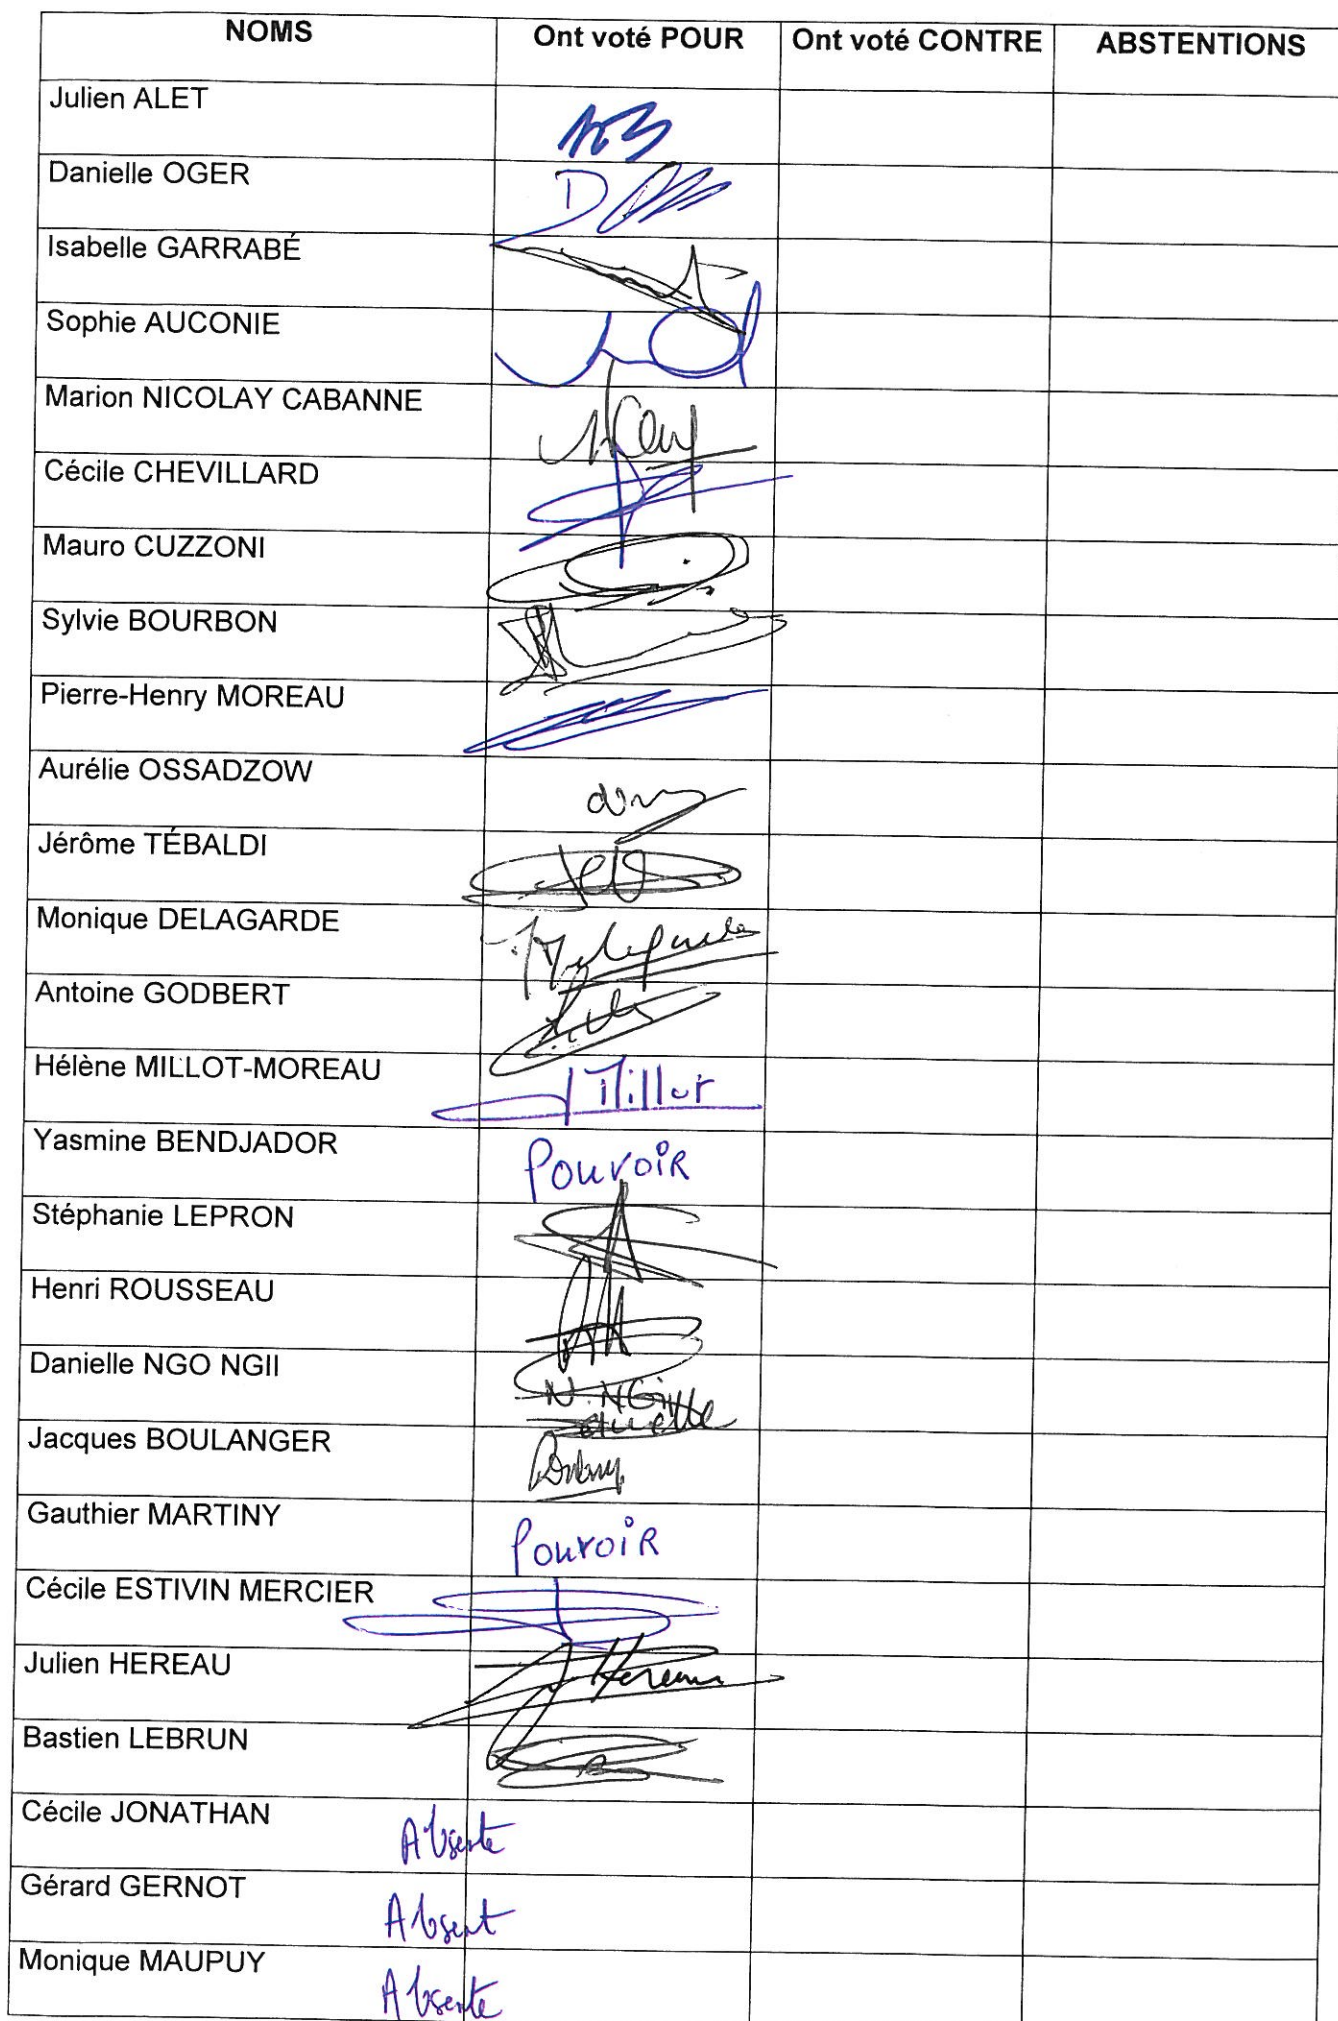 NOMS Ont voté POUR Ont voté CONTRE ABSTENTIONS
Julien ALET
Danielle OGER
Isabelle GARRABÉ
Sophie AUCONIE
Marion NICOLAY CABANNE
Cécile CHEVILLARD
Mauro CUZZONI
Sylvie BOURBON
Pierre-Henry MOREAU
Aurélie OSSADZOW
Jérôme TÉBALDI
Monique DELAGARDE
Antoine GODBERT
Hélène MILLOT-MOREAU Millot
Yasmine BENDJADOR Pouvoir
Stéphanie LEPRON
Henri ROUSSEAU
Danielle NGO NGII
Jacques BOULANGER
Gauthier MARTINY Pouvoir
Cécile ESTIVIN MERCIER
Julien HEREAU Hereau
Bastien LEBRUN
Cécile JONATHAN Absente
Gérard GERNOT Absent
Monique MAUPUY Absente